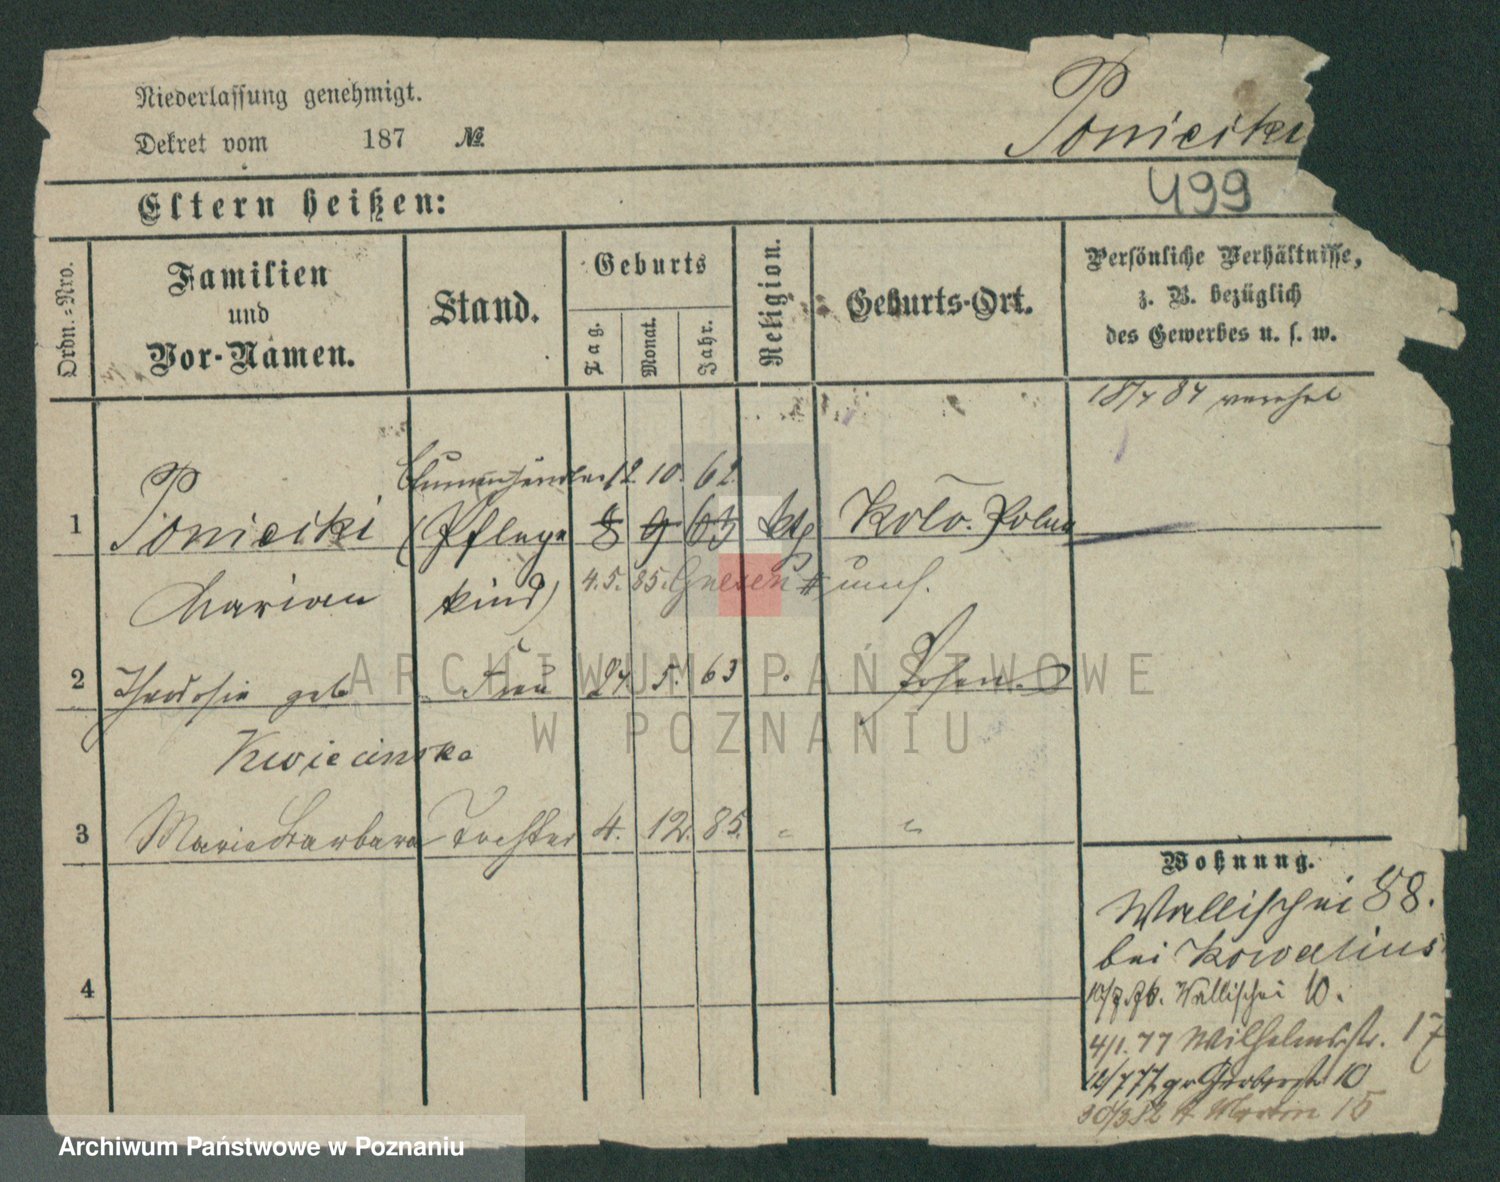 Niederlassung genehmigt.
Dekret vom 187 №
Poniciki
499
Eltern heißen:
Ordn.-Nro.
Familien
und
Vor-Namen.
Stand.
Geburts
Tag.
Monat.
Jahr.
Religion.
Geburts-Ort.
Persönliche Verhältnisse,
z. B. bezüglich
des Gewerbes u. s. w.
18/7 84 verehel
12. 10. 62.
1 Poniciki (Pflege 8 9 63 ktg Kolo. Polen
Marian kind) 4.5. 85. Gnesen umf.
2 Theodosia geb Frau 24. 5. 63 Posen
Kwiecinska
3 Maria Barbara Tochter 4. 12. 85. " "
4
Wohnung.
Wallischei 88.
bei Kowalius
10/7.76. Wallischei 10.
4/1. 77 Wilhelmstr. 17
12/7 77 gr Gerberstr 10
30/3 82 St Martin 15
ARCHIWUM PAŃSTWOWE
W POZNANIU
Archiwum Państwowe w Poznaniu